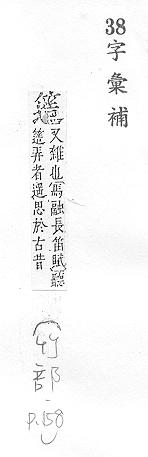 38字彙補
又雜也馬融長笛賦聽
簉弄者遙思於古昔
(竹部 P.158)